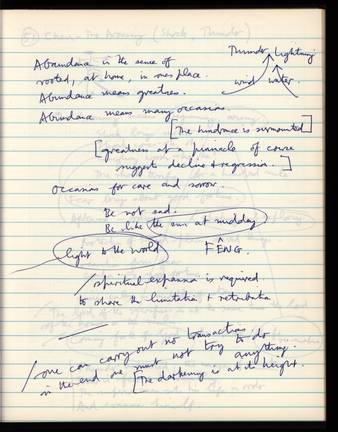 Abundance is the sense of
rooted, at home, in ones place.
Thunder Lightning
wind water.
Abundance means greatness.
Abundance means many occasions.
[The hindrance is surmounted]
[greatness at a pinnacle of course
suggests decline & regression.]
Occasions for care and sorrow.
Be not sad.
Be like the sun at midday
light to the world FÊNG.
/spiritual expansion is required
to share the limitation & retribution
/one can carry out no transactions
in the end one must not try to do
anything.
[The darkening is at its height.